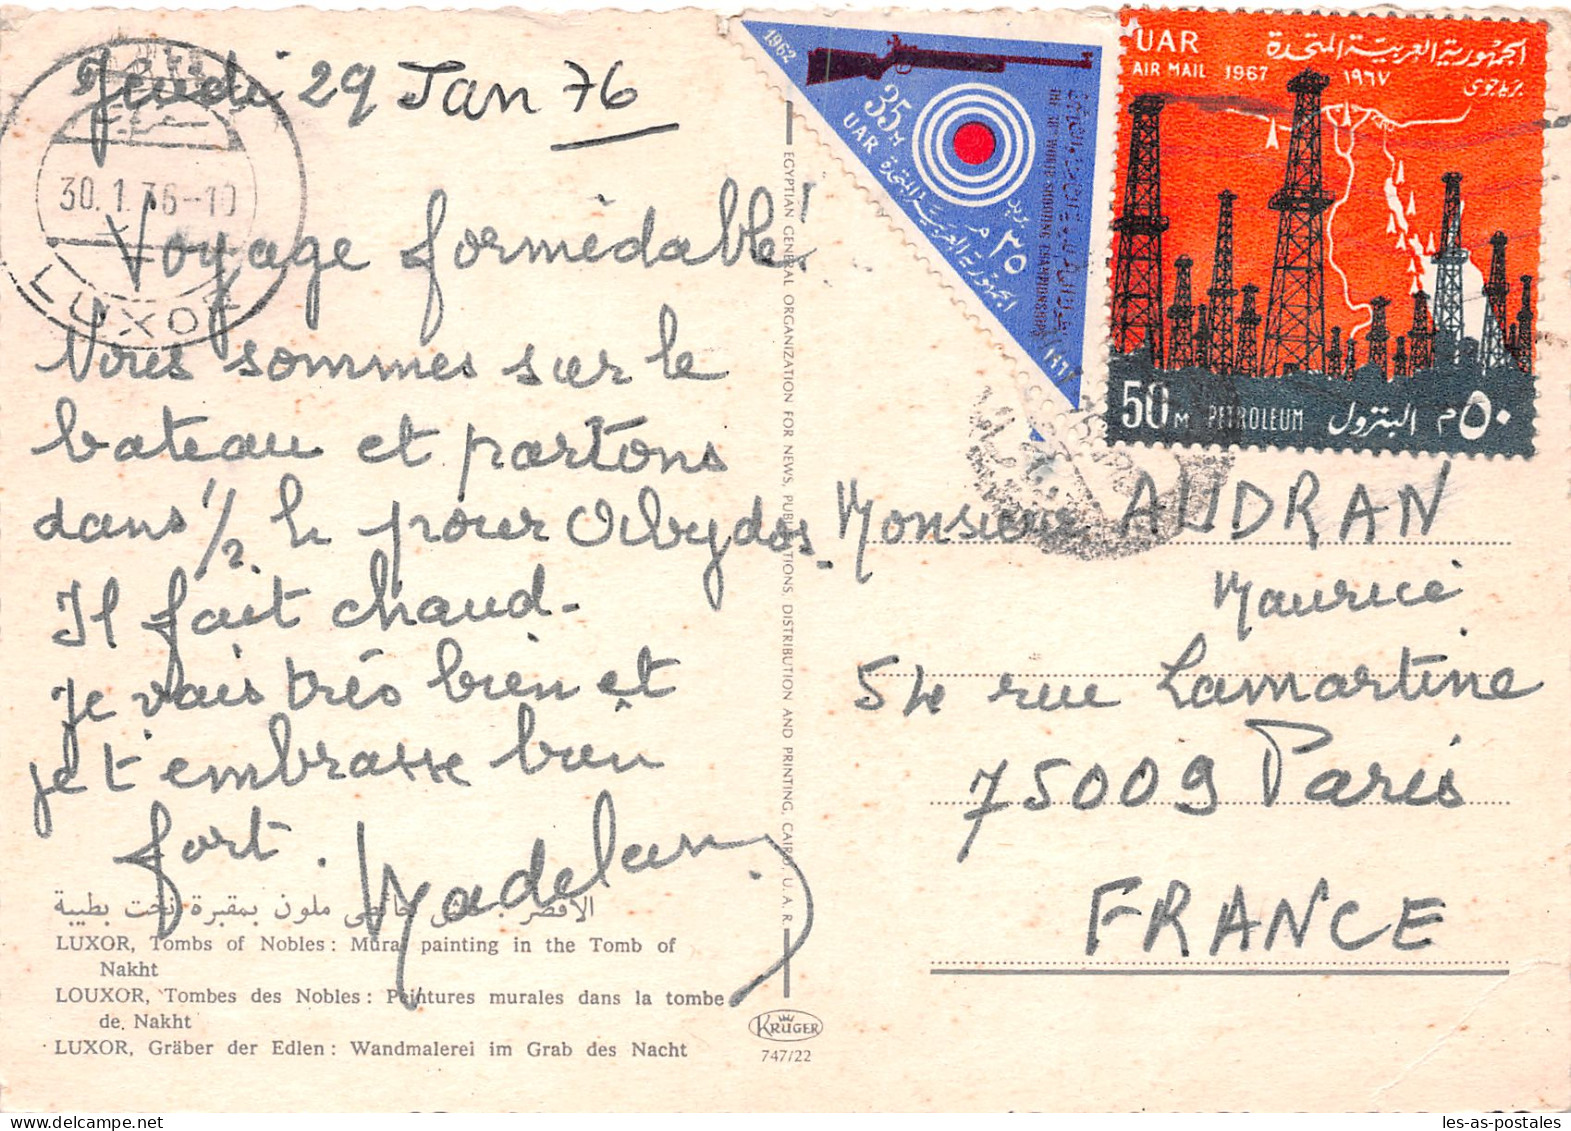 Jeudi 29 Jan 76
30.1.76-10
LUXOR
Voyage formidable!
Nous sommes sur le
bateau et partons
dans 1/2 h pour Abydos.
Il fait chaud-
Je vais très bien et
je t'embrasse bien
fort.
LUXOR, Tombs of Nobles: Mural painting in the Tomb of
Nakht
LOUXOR, Tombes des Nobles: Peintures murales dans la tombe
de Nakht
LUXOR, Gräber der Edlen: Wandmalerei im Grab des Nacht
EGYPTIAN GENERAL ORGANIZATION FOR NEWS, PUBLICATIONS, DISTRIBUTION AND PRINTING, CAIRO, U.A.R.
KRÜGER
747/22
1962
35 M
UAR
٣٥ م
بريد
الجمهورية العربية المتحدة
١٩٦٢
UAR
الجمهورية العربية المتحدة
AIR MAIL 1967 ١٩٦٧
بريد جوى
50 M PETROLEUM البترول ٥٠ م
Monsieur AUDRAN
Maurice
54 rue Lamartine
75009 Paris
FRANCE
les-as-postales